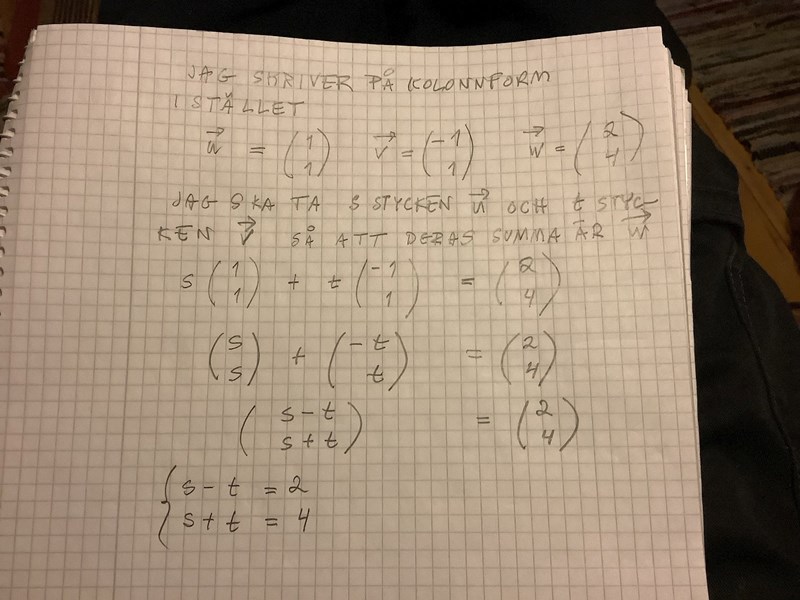 JAG SKRIVER PÅ KOLONNFORM
ISTÄLLET
u⃗ = (1 1) v⃗ = (-1 1) w⃗ = (2 4)
JAG SKA TA S STYCKEN u⃗ OCH t STYC-
KEN v⃗ SÅ ATT DERAS SUMMA ÄR w⃗
s (1 1) + t (-1 1) = (2 4)
(s s) + (-t t) = (2 4)
(s-t s+t) = (2 4)
{ s - t = 2
s + t = 4